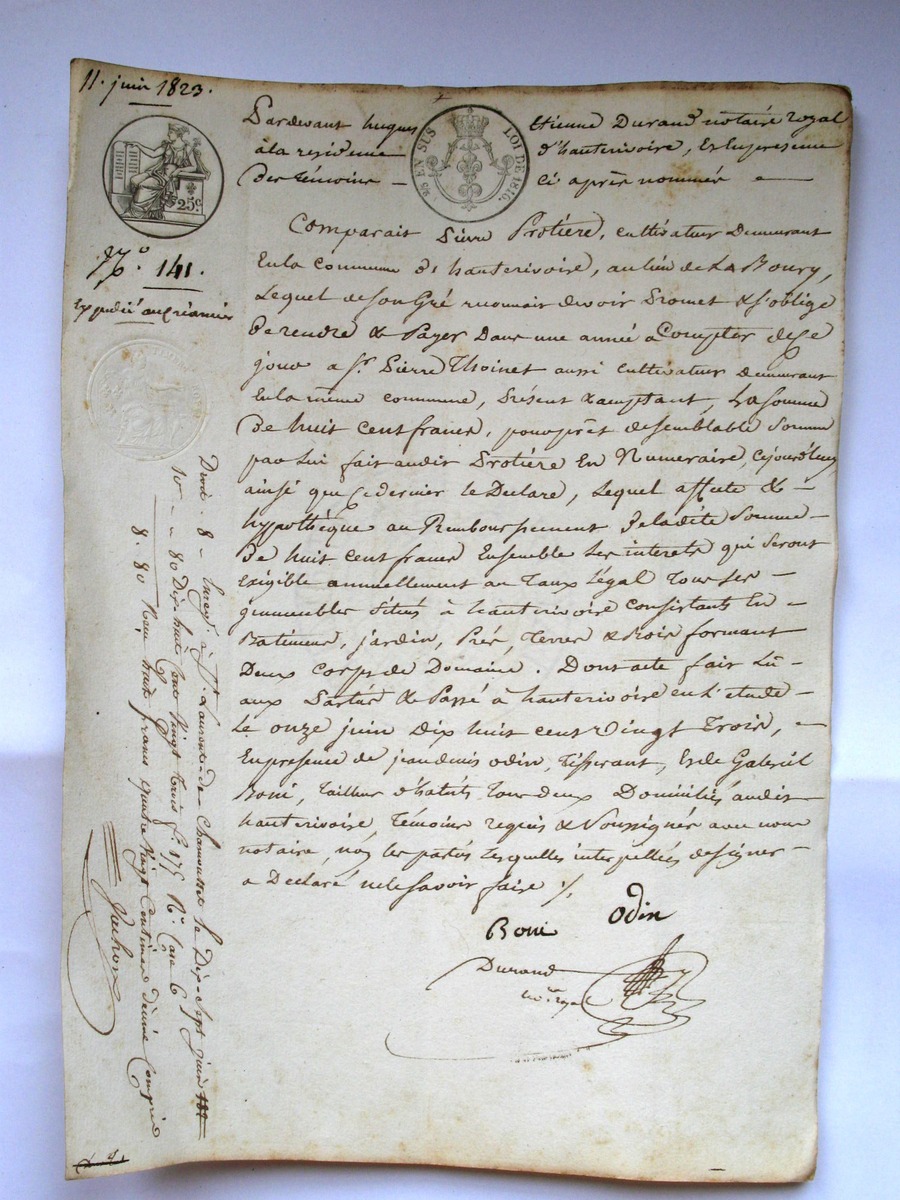 11. juin 1823.
25 EN SUS LOI DE 1816.
25c.
N.o 141.
Expedié au créancier
Pardevant hugues Etienne Durand notaire royal
à la residence d'hauterivoire, En la presence
des témoins – ci après nommés –
Comparait Pierre Protière, cultivateur Demeurant
En la commune d'hauterivoire, au lieu de La Boury,
Lequel de son Gré reconnait devoir Promet & s'oblige
De rendre & Payer Dans une année à Compter de Ce
jour a Sr. Pierre Thoinet aussi cultivateur Demeurant
En la même commune, Présent & acceptant, La Somme
De huit cent francs, pour prêt de semblable Somme
par Lui fait audit Protière En Numeraire, cejourd'huy
ainsi que Ce dernier le Declare, Lequel affecte & –
hypothèque au Remboursement De ladite Somme –
De huit cent francs Ensemble Les interets qui seront
Exigible annuellement au Taux légal Tous ses –
immeubles Situés à hauterivoire consistants En –
Batiment, jardin, Prés, Terres & Bois formant
Deux corps de Domaine. Dont acte fait Lu –
aux Parties & Passé à hauterivoire en L'etude –
Le onze juin Dix huit cent Vingt Trois, –
En presence de jean denis odin, Tisserant, Et de Gabriel
Boni, Tailleur d'habits Tous deux Domiciliés audit
hauterivoire Témoins requis & Soussignés avec nous
notaire, non les parties Lesquelles interpellées de signer –
a Declaré ne le Savoir faire ./.
Boni Odin
Durand
no.re royal
Droit . 8 – Enreg. à St. Laurent de Chamousset le Dix-Sept juin 182
10.e – 80 Dix huit cent vingt trois f.o 175 R.o Case 6
8. 80 Reçu huit francs quatre vingt Centimes décime Compris